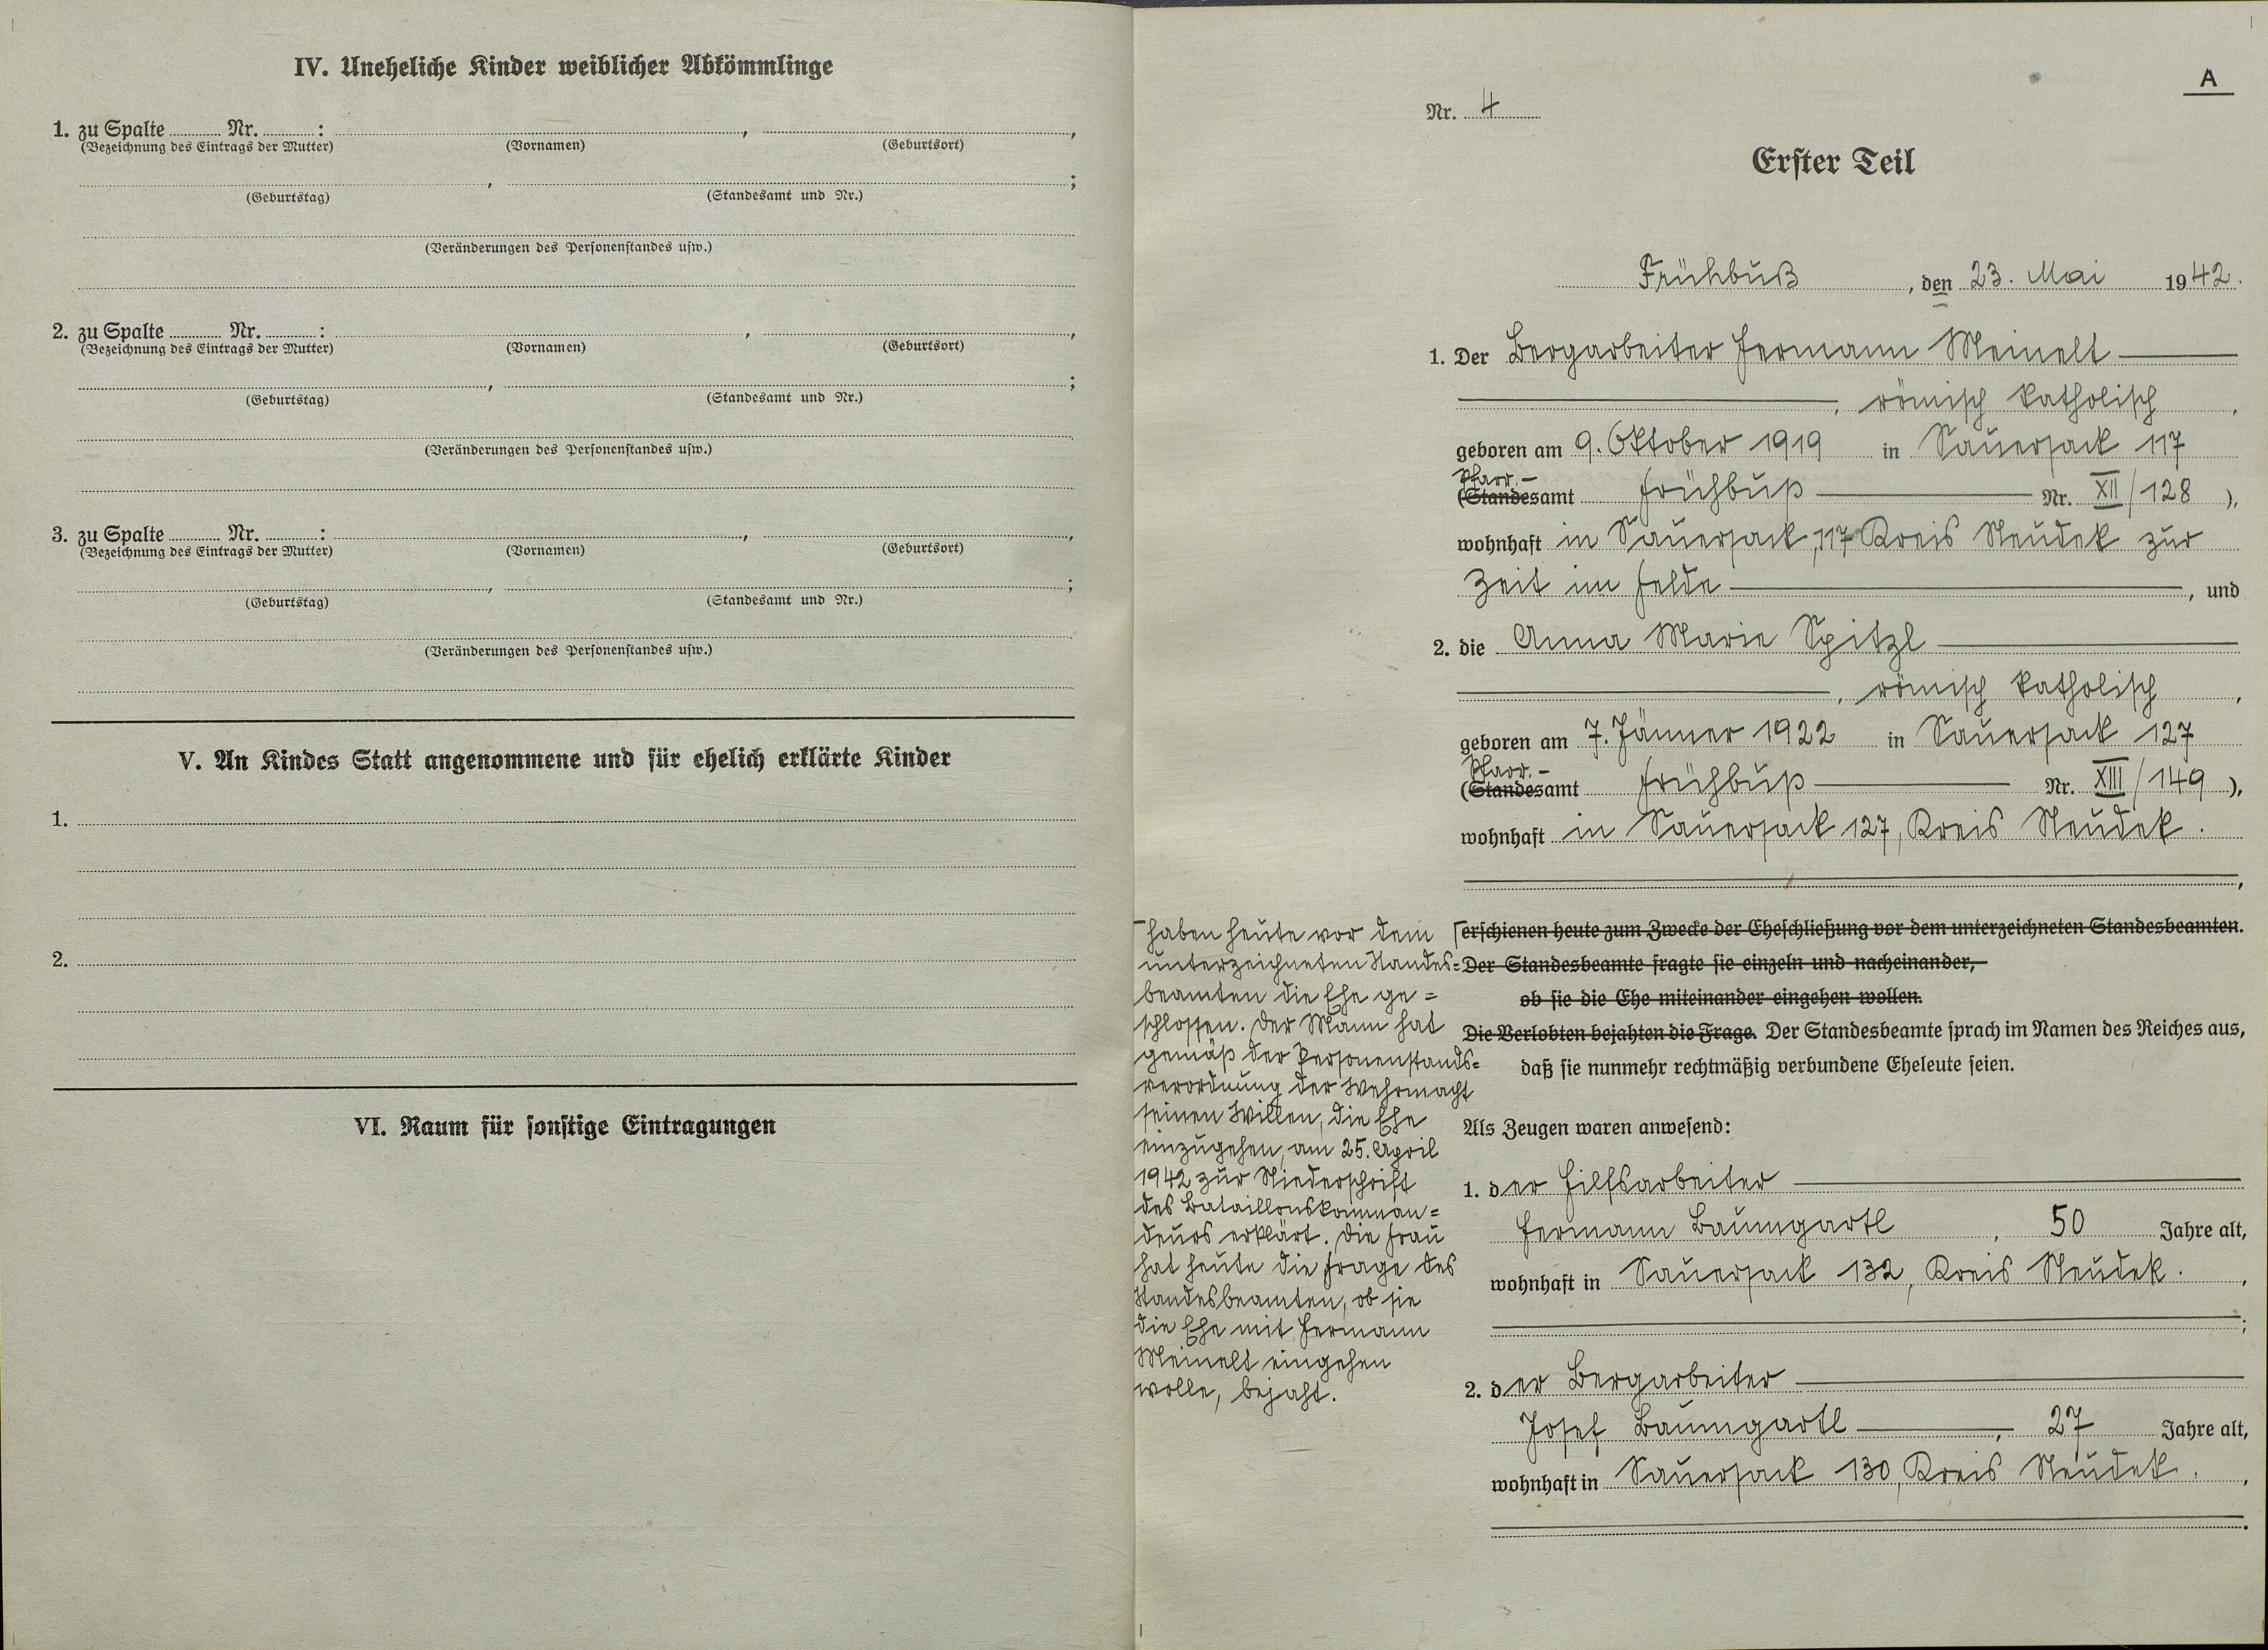 IV. Uneheliche Kinder weiblicher Abkömmlinge
1. zu Spalte Nr. : , ,
(Bezeichnung des Eintrags der Mutter) (Vornamen) (Geburtsort)
, ;
(Geburtstag) (Standesamt und Nr.)
(Veränderungen des Personenstandes usw.)
2. zu Spalte Nr. : , ,
(Bezeichnung des Eintrags der Mutter) (Vornamen) (Geburtsort)
, ;
(Geburtstag) (Standesamt und Nr.)
(Veränderungen des Personenstandes usw.)
3. zu Spalte Nr. : , ,
(Bezeichnung des Eintrags der Mutter) (Vornamen) (Geburtsort)
, ;
(Geburtstag) (Standesamt und Nr.)
(Veränderungen des Personenstandes usw.)
V. An Kindes Statt angenommene und für ehelich erklärte Kinder
1.
2.
VI. Raum für sonstige Eintragungen
A
Nr. 4
Erster Teil
Frühbuß, den 23. Mai 1942.
1. Der Bergarbeiter Hermann Meinelt
, römisch katholisch,
geboren am 9. Oktober 1919 in Sauersack 117
Pfarr.-
(Standesamt Frühbuß Nr. XII/128),
wohnhaft in Sauersack, 117 Kreis Neudek zur
Zeit im Felde, und
2. die Anna Marie Spitzl
, römisch katholisch,
geboren am 7. Jänner 1922 in Sauersack 127
Pfarr.-
(Standesamt Frühbuß Nr. XIII/149),
wohnhaft in Sauersack 127, Kreis Neudek.
,
erschienen heute zum Zwecke der Eheschließung vor dem unterzeichneten Standesbeamten.
Der Standesbeamte fragte sie einzeln und nacheinander,
ob sie die Ehe miteinander eingehen wollen.
Die Verlobten bejahten die Frage. Der Standesbeamte sprach im Namen des Reiches aus,
daß sie nunmehr rechtmäßig verbundene Eheleute seien.
haben heute vor dem
unterzeichneten Standes=
beamten die Ehe ge=
schlossen. Der Mann hat
gemäß der Personenstands=
verordnung der Wehrmacht
seinen Willen, die Ehe
einzugehen, am 25. April
1942 zur Niederschrift
des Bataillonskomman=
deurs erklärt. Die Frau
hat heute die Frage des
Standesbeamten, ob sie
die Ehe mit Hermann
Meinelt eingehen
wolle, bejaht.
Als Zeugen waren anwesend:
1. der Hilfsarbeiter
Hermann Baumgartl, 50 Jahre alt,
wohnhaft in Sauersack 132, Kreis Neudek.,
;
2. der Bergarbeiter
Josef Baumgartl, 27 Jahre alt,
wohnhaft in Sauersack 130, Kreis Neudek.,
.